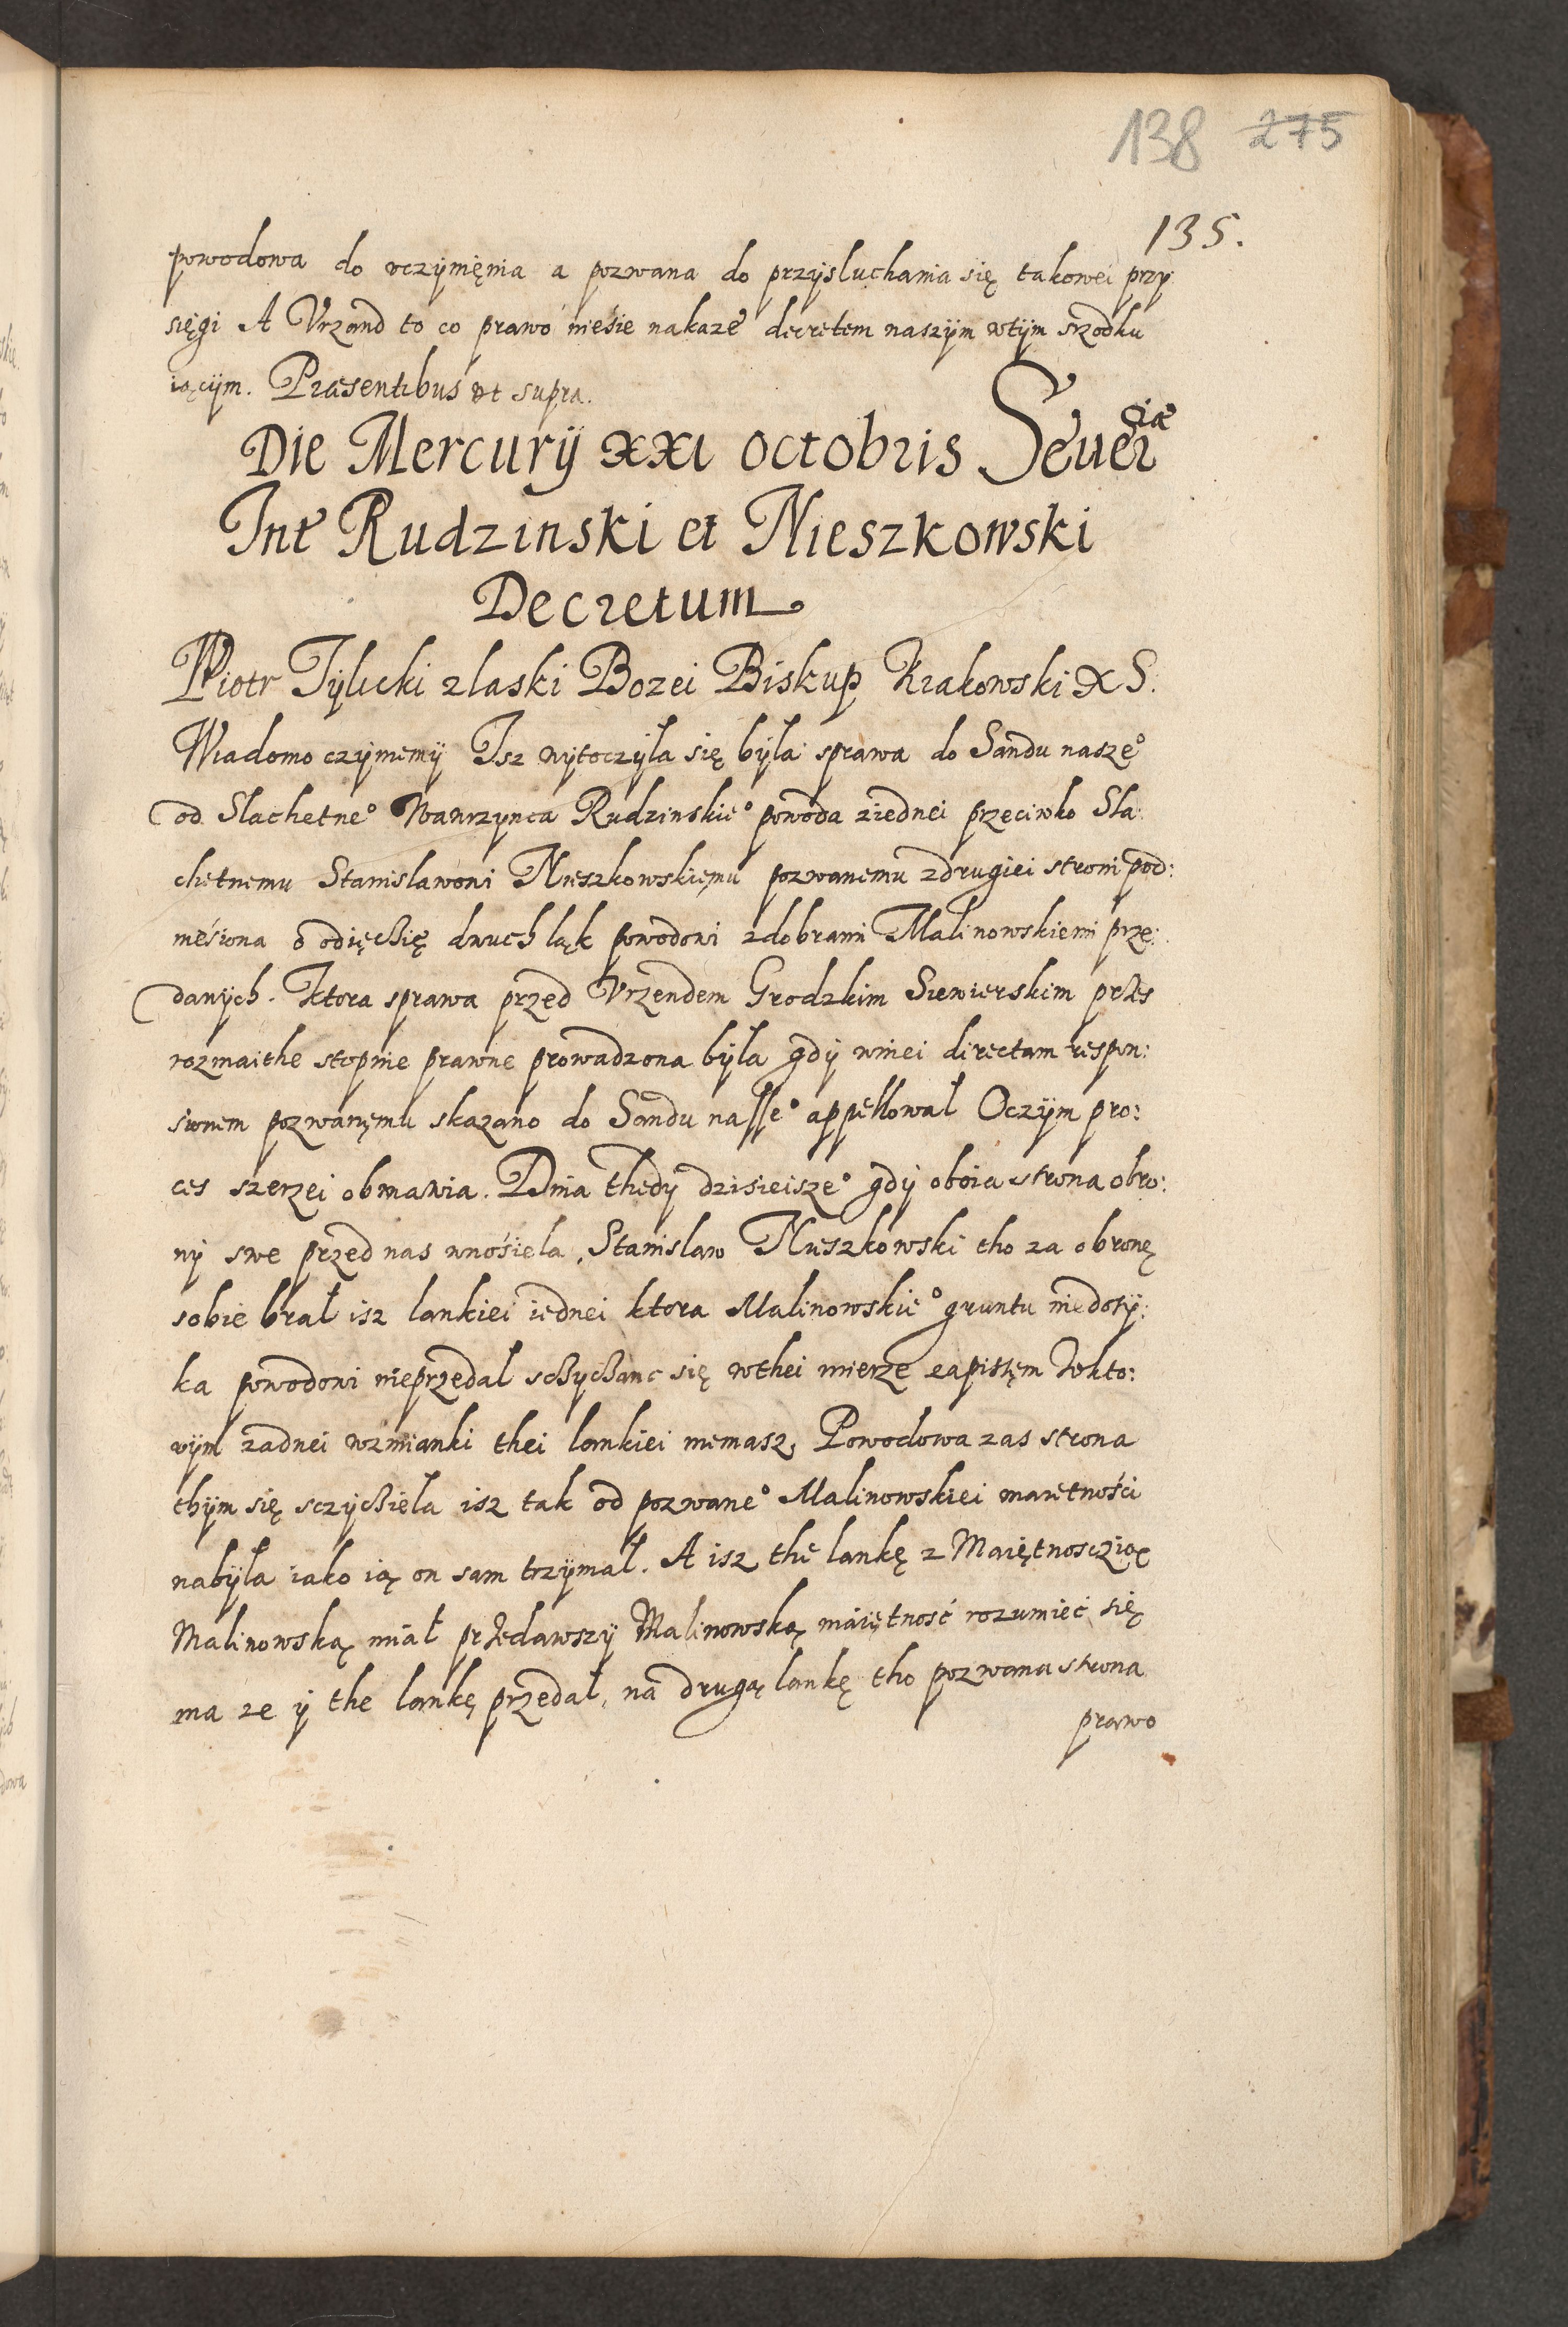 138 275
135.
powodowa do vczÿnięnia a pozwana do przÿsluchania się takowei przy
sięgi A Vrzand to co prawo niesie nakaze decretem naszÿm wtÿm srzodku
iącÿm. Præsentibus vt supra.
Die Mercurÿ XXI octobris Seueriæ
Int Rudzinski et Nieszkowski
Decretum
Piotr Tÿlicki z laski Bozei Biskup Krakowski X S.
Wiadomo czÿniemÿ Isz wÿtoczÿla się bÿla sprawa do Sandu nasze°
od Slachetne° Wawrzynca Rudzinskie° powoda ziednei przeciwko Sla:
chetnemu Stanislawowi Nieszkowskięmu pozwanemu zdrugiei stroni pod:
niesiona o odięczię dwuch ląk powodowi zdobrami Malinowskiemi prze:
danÿch. Ktora sprawa przed Vrzendem Grodzkim Siewierskim przes
rozmaithe stopnie prawne prowadzona bÿla gdÿ wniei directam respon:
sionem pozwanęmu skazano do Sandu nasse° appellowal Oczÿm pro:
ces szerzei obmawia. Dnia thedÿ dzisieisze° gdÿ oboia strona obro:
nÿ swe przed nas wnosiela, Stanislaw Nieszkowski tho za obronę
sobie bral isz lankiei iednei ktora Malinowskie° gruntu niedotÿ:
ka powodowi nieprzedal sczÿczanc się wthei mierze zapisęm wkto:
rÿm zadnei wzmianki thei lankiei niemasz, Powodowa zas strona
thÿm się sczÿcziela isz tak od pozwane° Malinowskiei maietności
nabÿla iako ią on sam trzÿmal. A isz the lankę z Maiętnosczią
Malinowską mial przedawszÿ Malinowską maiętność rozumieć się
ma ze ÿ the lankę przedal, na drugą lankę tho pozwana strona
prawo